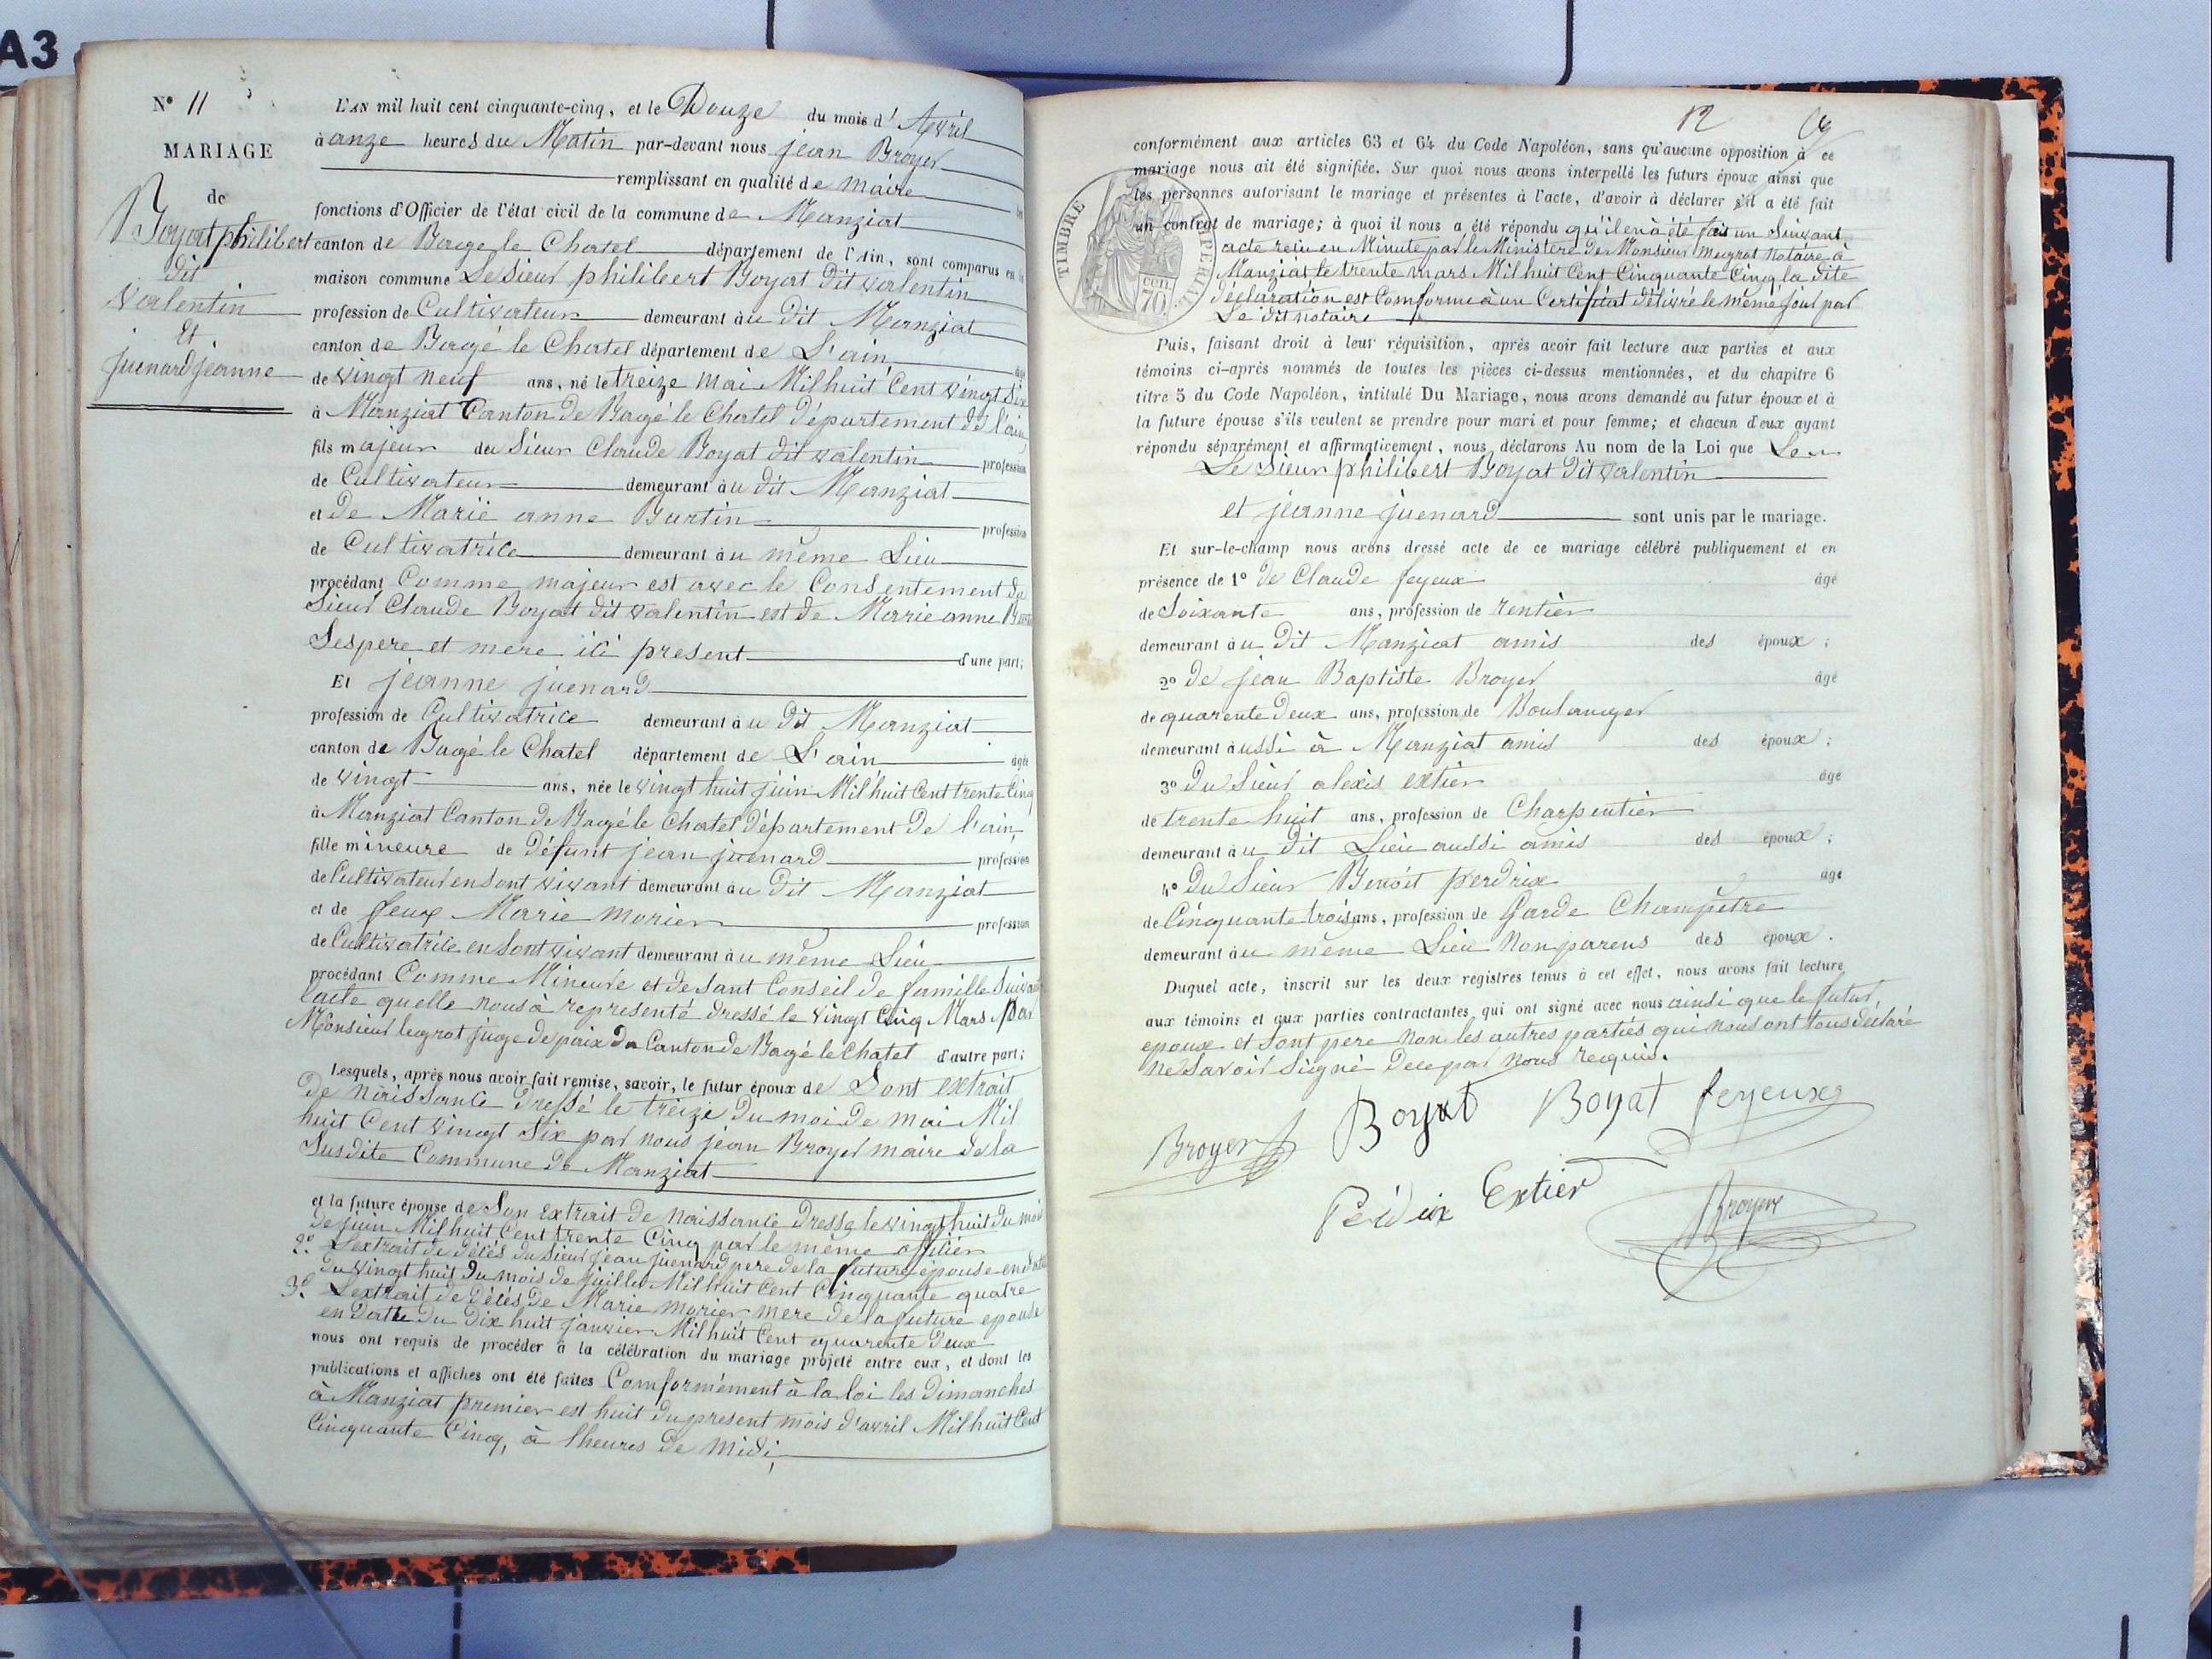 A3
N° 11
MARIAGE
de
Boyat philibert
dit
valentin
Et
juenard jeanne
L'AN mil huit cent cinquante-cinq, et le Douze du mois d'Avril
à anze heures du Matin par-devant nous jean Broyer
remplissant en qualité de maire
fonctions d'Officier de l'état civil de la commune de Manziat
canton de Bage le Chatel département de l'Ain, sont comparus en la
maison commune Le Sieur philibert Boyat dit valentin
profession de Cultivateur demeurant àu dit Manziat
canton de Bagé le Chatel département de L'ain âgé
de vingt neuf ans, né le treize mai Mil huit Cent vingt Six
à Manziat Canton de Bagé le Chatel département de l'ain
fils majeur du Sieur Claude Boyat dit valentin profession
de Cultivateur demeurant àu dit Manziat
et de Marie anne Burtin profession
de Cultivatrice demeurant àu même Lieu
procédant Comme majeur est avec le Consentement du
Sieur Claude Boyat dit valentin est de Marie anne
Ses pere et mere ici present d'une part;
Et jeanne juenard
profession de Cultivatrice demeurant àu dit Manziat
canton de Bagé le Chatel département de L'ain âgée
de vingt ans, née le vingt huit juin Mil huit Cent trente Cinq
à Manziat Canton de Bagé le Chatel Département de l'ain
fille mineure de défunt jean juenard profession
de Cultivateur en Sont vivant demeurant àu dit Manziat
et de feux Marie morier profession
de Cultivatrice en Sont vivant demeurant àu même Lieu
procédant Comme Mineure et de Sant Conseil de famille Suivant
l'acte quelle nous à representé dressé le vingt Cinq Mars par
Monsieur legrot juge de paix du Canton de Bagé le Chatel d'autre part;
Lesquels, après nous avoir fait remise, savoir, le futur époux de Sont extrait
de naissance dressé le treize du moi de mai Mil
huit Cent vingt Six par nous jean Broyer maire de la
Susdite Commune de Manziat
et la future épouse de Son Extrait de naissance Dressé le vingt huit du mois
de juin Mil huit Cent trente Cinq par le même officier
2° L'extrait de décés du Sieur jean juenard pere de la future épouse en datte
du vingt huit du mois de juillet Mil huit Cent Cinquante quatre
3° L'extrait de décés de Marie morier mere de la future epouse
en datte du dix huit janvier Mil huit Cent quarente deux
nous ont requis de procéder à la célébration du mariage projeté entre eux, et dont les
publications et affiches ont été faites Comformément à la loi les Dimanches
à Manziat premier est huit du present mois d'avril Mil huit Cent
Cinquante Cinq, à lheures de midi,
12
conformément aux articles 63 et 64 du Code Napoléon, sans qu'aucune opposition à ce
mariage nous ait été signifiée. Sur quoi nous avons interpellé les futurs époux ainsi que
les personnes autorisant le mariage et présentes à l'acte, d'avoir à déclarer s'il a été fait
un contrat de mariage; à quoi il nous a été répondu qu'il en à été fais un Suivant
acte reçu en Minute par le Ministere de Monsieur Meyrat Notaire à
Manziat le trente mars Mil huit Cent Cinquante Cinq la dite
déclaration est Comforme à un Certificat délivré le même jour par
Le dit notaire
TIMBRE IMPERIAL
CEN.
70
Puis, faisant droit à leur réquisition, après avoir fait lecture aux parties et aux
témoins ci-après nommés de toutes les pièces ci-dessus mentionnées, et du chapitre 6
titre 5 du Code Napoléon, intitulé Du Mariage, nous avons demandé au futur époux et à
la future épouse s'ils veulent se prendre pour mari et pour femme; et chacun d'eux ayant
répondu séparément et affirmativement, nous déclarons Au nom de la Loi que Le
Le Sieur philibert Boyat dit valentin
et jeanne juenard sont unis par le mariage.
Et sur-le-champ nous avons dressé acte de ce mariage célébré publiquement et en
présence de 1° de Claude feyeux âgé
de Soixante ans, profession de rentier
demeurant àu dit Manziat amis des époux;
2° de jean Baptiste Broyer âgé
de quarente deux ans, profession de Boulanger
demeurant àussi à Manziat amis des époux;
3° du Sieur alexis extier âgé
de trente huit ans, profession de Charpentier
demeurant àu dit Lieu aussi amis des époux;
4° du Sieur Benoit perdrix âgé
de Cinquante trois ans, profession de Garde Champêtre
demeurant àu même Lieu Non parens des époux.
Duquel acte, inscrit sur les deux registres tenus à cet effet, nous avons fait lecture
aux témoins et aux parties contractantes qui ont signé avec nous ainsi que le futur,
epoux et Sont pere Non les autres parties qui nous ont tous declaré
ne Savoir Signé dece par nous requis.
Broyer Boyat Boyat feyeux
Perdrix Extier Broyer